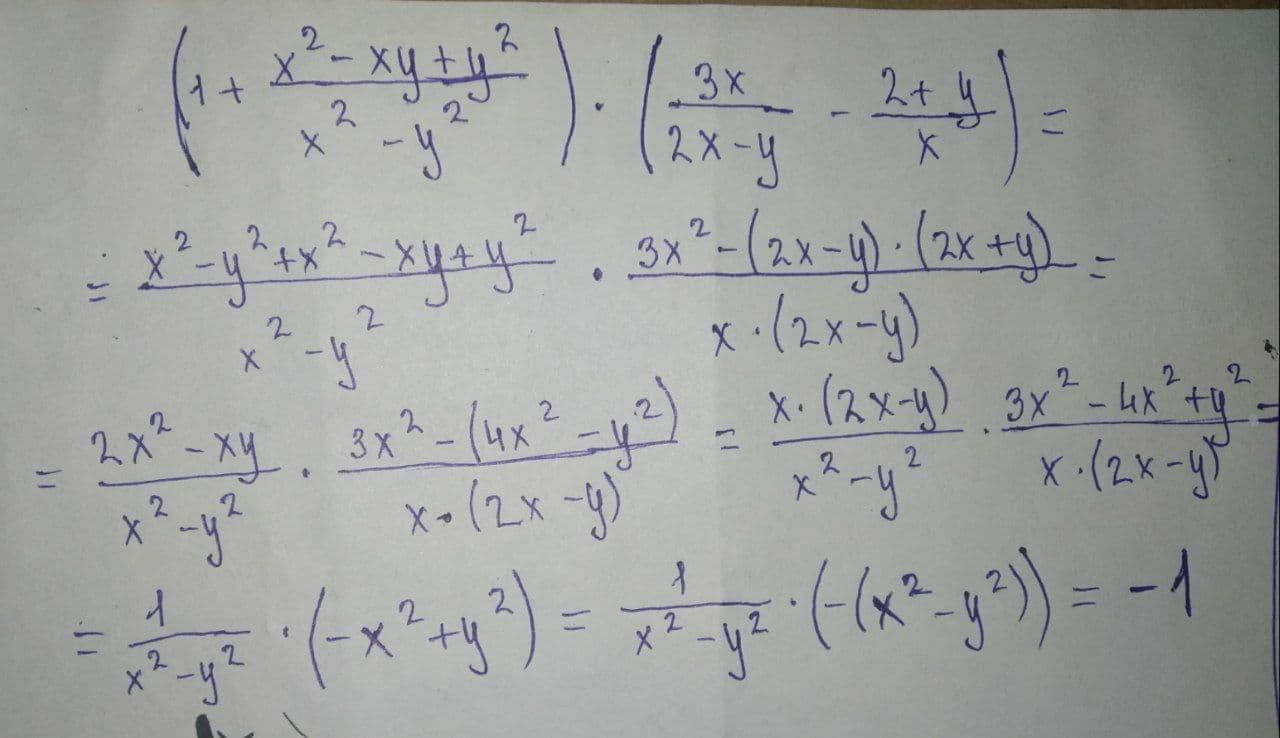 (1 + (x² - xy + y²)/(x² - y²)) · (3x/(2x - y) - (2 + y)/x) =
= (x² - y² + x² - xy + y²)/(x² - y²) · (3x² - (2x - y) · (2x + y))/(x · (2x - y)) =
= (2x² - xy)/(x² - y²) · (3x² - (4x² - y²))/(x · (2x - y)) = (x · (2x - y))/(x² - y²) · (3x² - 4x² + y²)/(x · (2x - y)) =
= 1/(x² - y²) · (-x² + y²) = 1/(x² - y²) · (-(x² - y²)) = -1